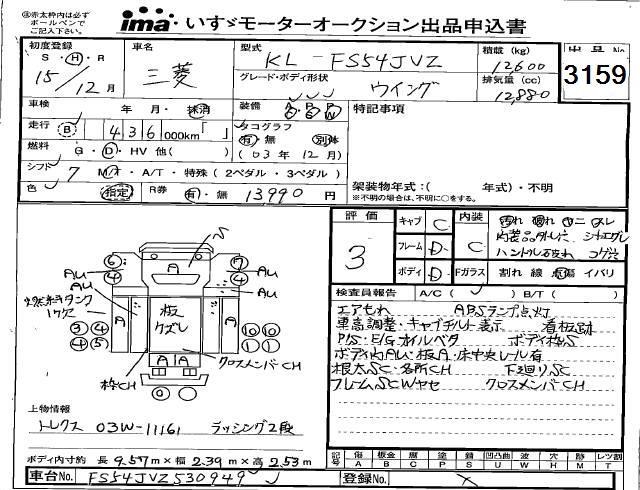 ㊟赤太枠内は必ず
ボールペンで
ご記入下さい。
ima いすゞモーターオークション出品申込書
初度登録 S・H・R 15/12月
車名 三菱
型式 KL-FS54JVZ
グレード・ボディ形状 ウイング
積載 (kg) 12,600
排気量 (cc) 12,880
出品No
3159
車検 年 月・抹消
装備
特記事項
走行 B 436,000km「 」
タコグラフ 有・無 別体 (03年12月)
燃料 G・D・HV 他( )
シフト 7 M/t・A/T・特殊 (2ペダル・3ペダル)
色 指定 R券 有・無 13990円
架装物年式:( 年式)・不明
※不明の場合は、不明に○をする。
評価 3
キャブ C
フレーム D
ボディ D
内装 C
Fガラス 割れ 線 点傷 イバリ
検査員報告 A/C( ) B/T( )
エアもれ ABSランプ点灯
車高調整・キャブチルト表示 看板跡
P/S・E/Gオイルベタ ボディ枠S
ボディ内AU・板A・床中央レール有
根太SC・各所CH 下廻りSC
フレームSCワヤセ クロスメンバCH
S
A
6 4 AU AU
7 4 AU AU
A 板ケズレ A
3 4 4 5
10 10 11 11
A A
枠CH
クロスメンバーCH
0
上物情報
トレクス 03W-11161 ラッシング2段
ボディ内寸約 長 9.57m×幅 2.39m×高 2.53m
記号 傷A 板金B 腐C 塗P 錆S 凹凸曲U 波W 穴H 跡M レツ割T
車台No. FS54JVZ530949
登録No.